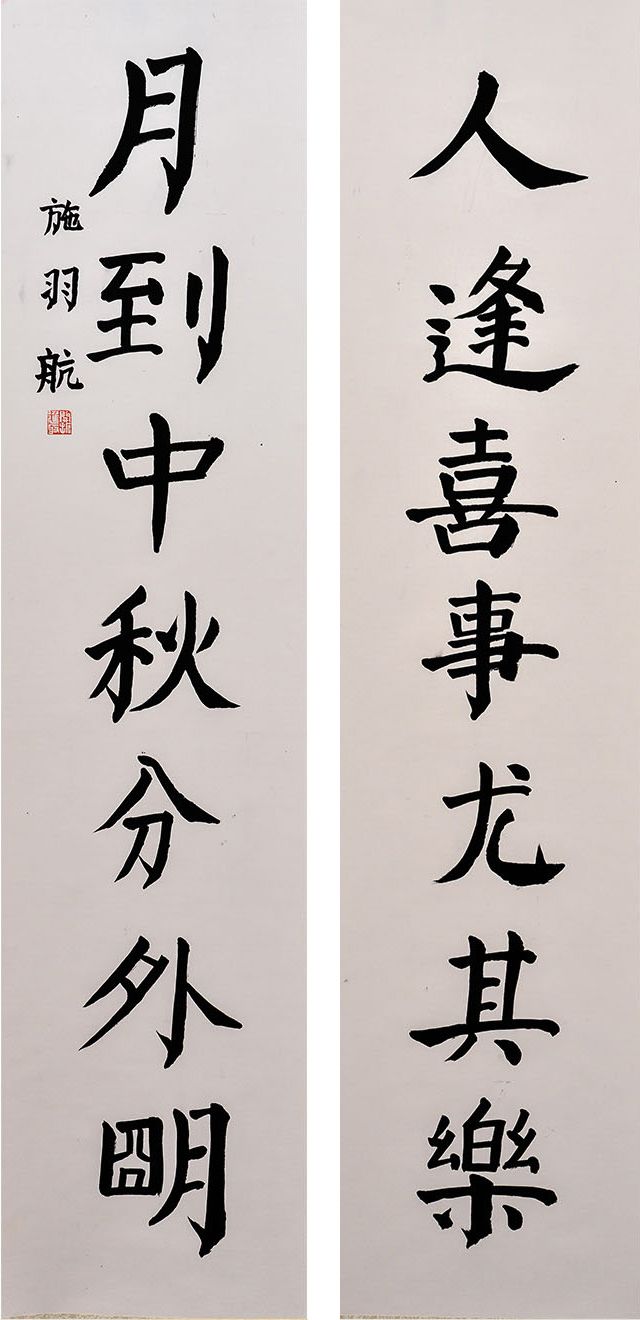 人逢喜事尤其樂
月到中秋分外朙
施羽航